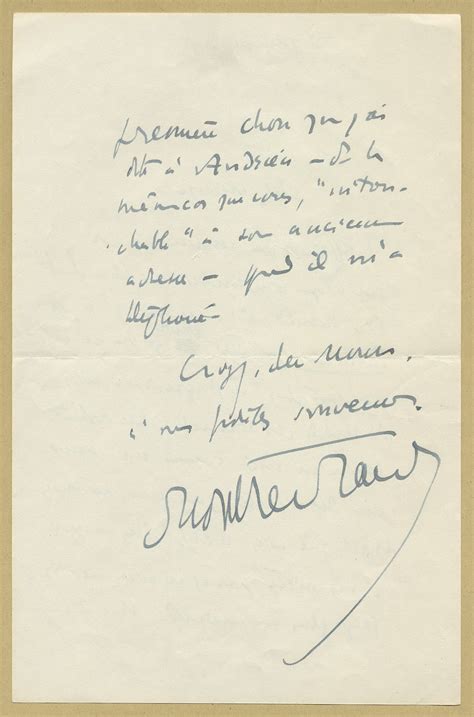 première chose que j'ai
dite à Andrieu – de la
même cas que vous, "intou-
chable" à son ancienne
adresse – quand il m'a
téléphoné.
Croyez, cher
à mes fidèles souvenirs.
Montherlant